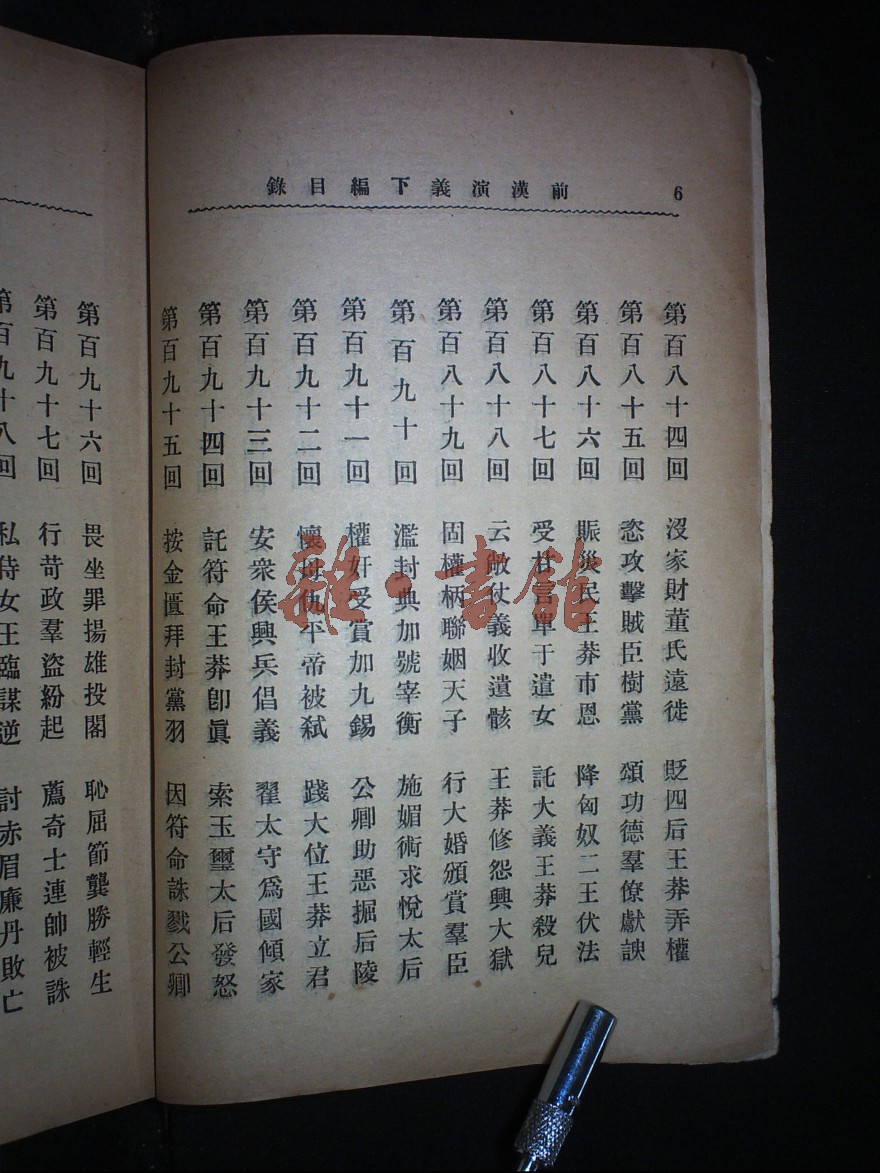 前漢演義下編目錄
6
第百八十四回 沒家財董氏遠徙 貶四后王莽弄權
第百八十五回 恣攻擊賊臣樹黨 頌功德羣僚獻諛
第百八十六回 賑災民王莽市恩 降匈奴二王伏法
第百八十七回 受甘言單于遣女 託大義王莽殺兒
第百八十八回 云敞仗義收遺骸 王莽修怨興大獄
第百八十九回 固權柄聯姻天子 行大婚頒賞羣臣
第百九十回 濫封典加號宰衡 施媚術求悅太后
第百九十一回 權奸受賞加九錫 公卿助惡掘后陵
第百九十二回 懷母仇平帝被弑 踐大位王莽立君
第百九十三回 安衆侯興兵倡義 翟太守爲國傾家
第百九十四回 託符命王莽卽眞 索玉璽太后發怒
第百九十五回 按金匱拜封黨羽 因符命誅戮公卿
第百九十六回 畏坐罪揚雄投閣 恥屈節龔勝輕生
第百九十七回 行苛政羣盜紛起 薦奇士連帥被誅
第百九十八回 私侍女王臨謀逆 討赤眉廉丹敗亡
雅·書館